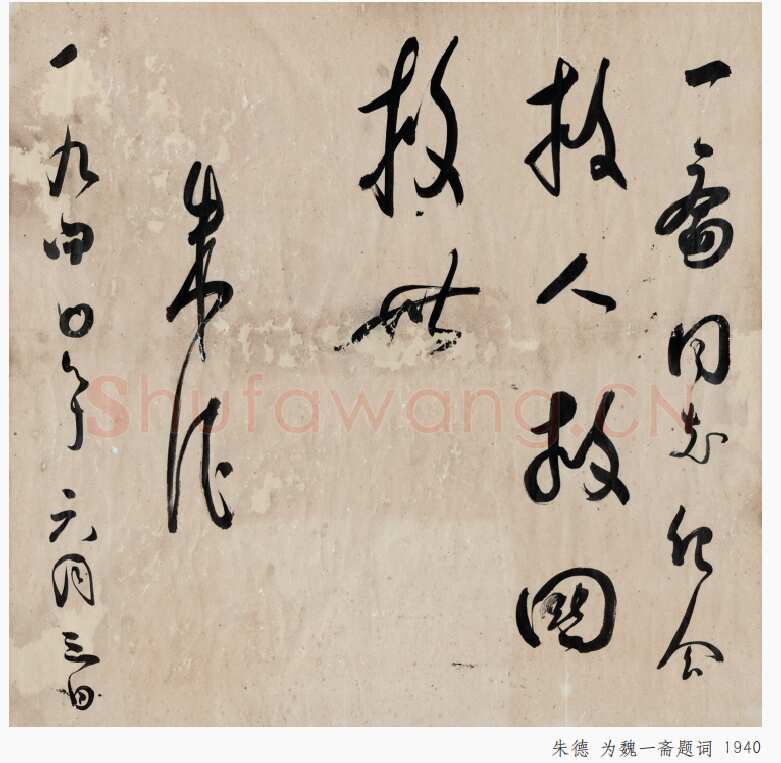 一斋同志纪念
救人救国
救世
朱德
一九四〇年六月三日
Shufawang.CN
朱德 为魏一斋题词 1940